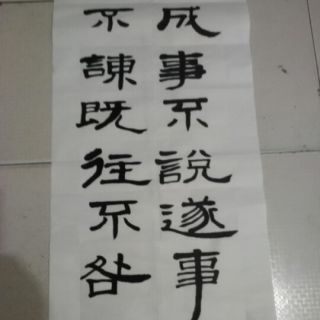 成事不說遂事
不諫既往不咎